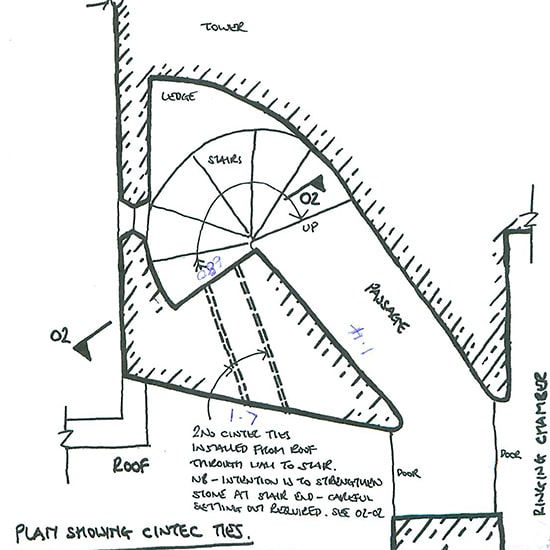 TOWER
LEDGE
STAIRS
02
UP
0.89
PASSAGE
1.4
02
1.7
2NO CINTEC TIES
INSTALLED FROM ROOF
THROUGH WALL TO STAIR.
NB - INTENTION IS TO STRENGTHEN
STONE AT STAIR END - CAREFUL
SETTING OUT REQUIRED. SEE 02-02
ROOF
DOOR
DOOR
RINGING CHAMBER
PLAN SHOWING CINTEC TIES.